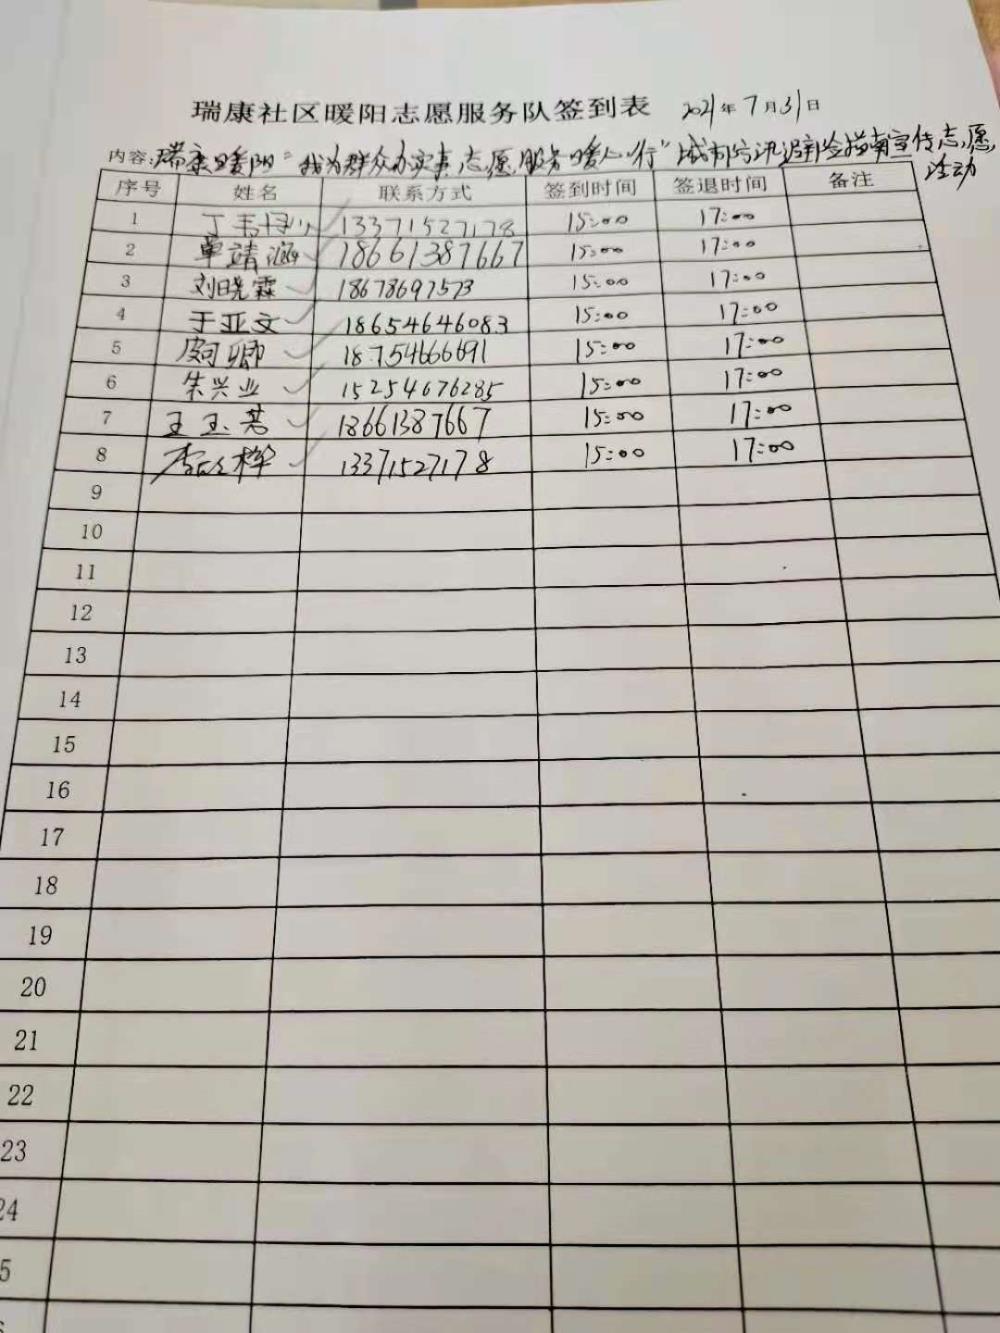 瑞康社区暖阳志愿服务队签到表 2021年7月31日
内容:瑞康暖阳"我为群众办实事,志愿服务暖人心行"城市防汛避险指南宣传志愿
活动
序号 姓名 联系方式 签到时间 签退时间 备注
1 丁 13371527178 15:00 17:00
2 覃靖涵 18661387667 15:00 17:00
3 刘晓霖 18678697573 15:00 17:00
4 于亚文 18654646083 15:00 17:00
5 卿 18754666691 15:00 17:00
6 朱兴业 15254676285 15:00 17:00
7 王玉茗 18661387667 15:00 17:00
8 李 桦 13371527178 15:00 17:00
9
10
11
12
13
14
15
16
17
18
19
20
21
22
23
24
5